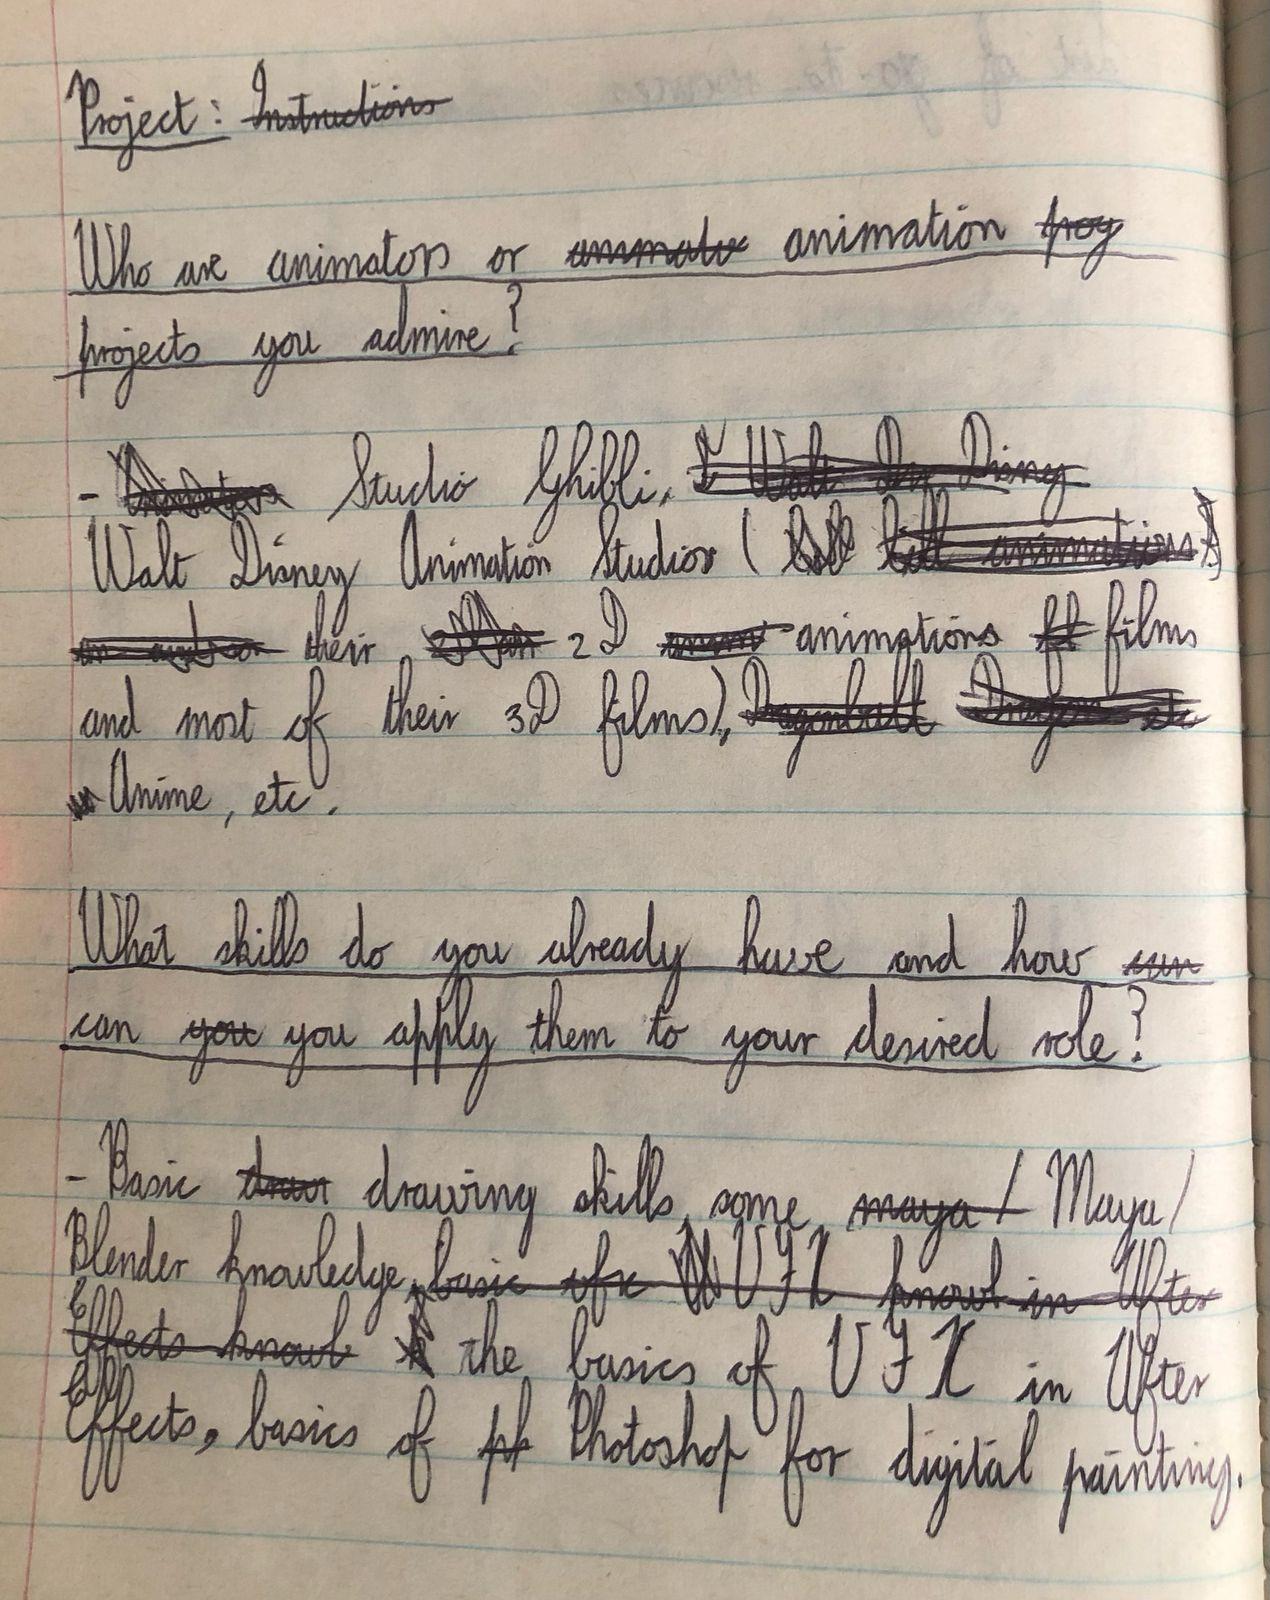 Project: Instructions
Who are animators or animation
projects you admire?
- Studio Ghibli, Walt Disney
Walt Disney Animation Studios ( full animations
their 2D animations films
and most of their 3D films), Dragonball Dragon etc
Anime, etc.
What skills do you already have and how can
can you you apply them to your desired role?
- Basic draw drawing skills, some maya / Maya/
Blender knowledge, basic vfx VFX knowl in After
Effects knowl the basics of VFX in After
Effects, basics of ph Photoshop for digital painting.